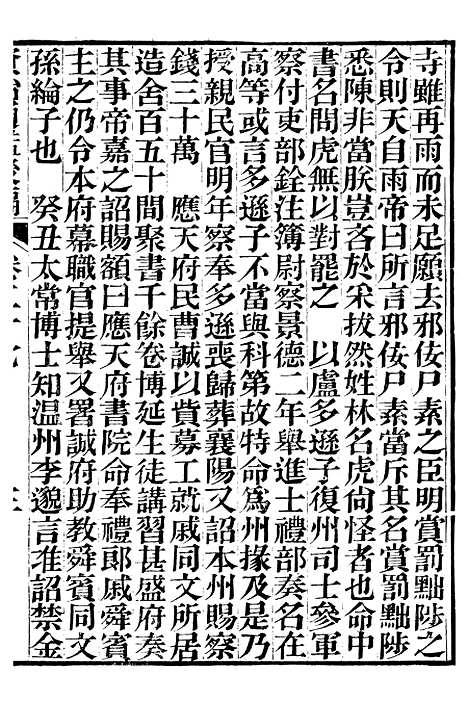 寺雖再雨而未足願去邪佞尸素之臣明賞罰黜陟之
令則天自雨帝曰所言邪佞尸素當斥其名賞罰黜陟
悉陳非當朕豈吝於采拔然姓林名虎尙怪者也命中
書名問虎無以對罷之　以盧多遜子復州司士參軍
察付吏部銓注簿尉察景德二年舉進士禮部奏名在
高等或言多遜子不當與科第故特命爲州掾及是乃
授親民官明年察奉多遜喪歸葬襄陽又詔本州賜察
錢三十萬　應天府民曹誠以貲募工就戚同文所居
造舍百五十間聚書千餘卷博延生徒講習甚盛府奏
其事帝嘉之詔賜額曰應天府書院命奉禮郎戚舜賓
主之仍令本府幕職官提舉又署誠府助教舜賓同文
孫綸子也　癸丑太常博士知温州李邈言準詔禁金